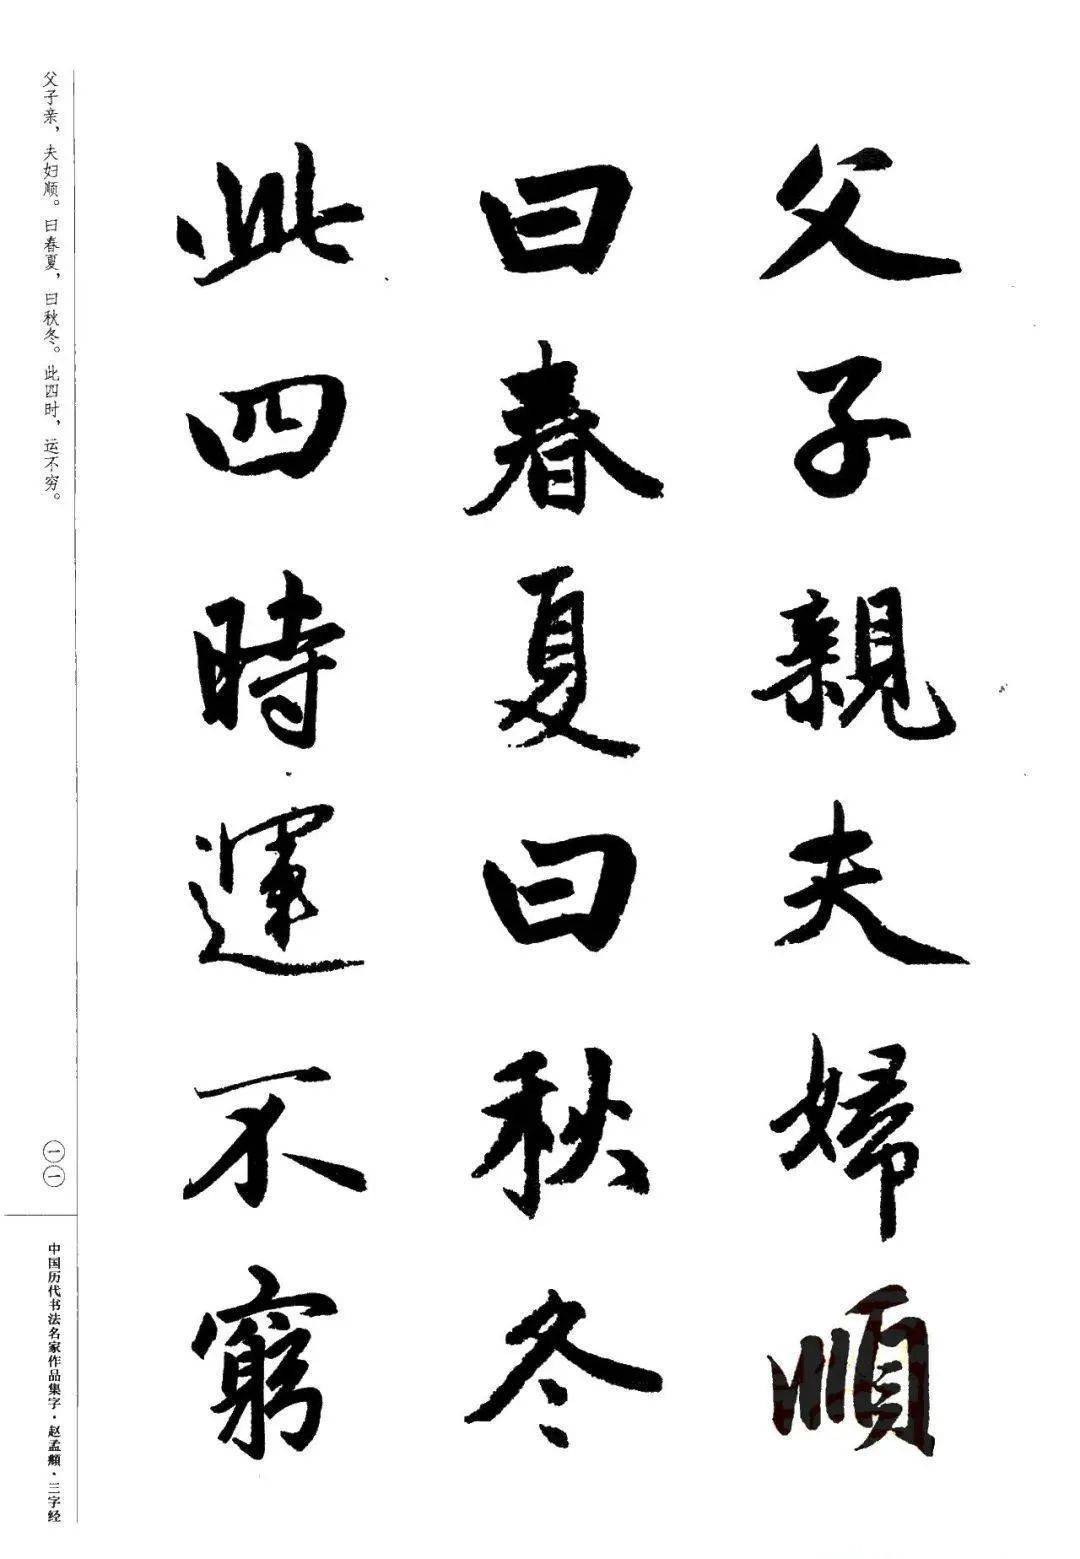 父子親夫婦順
曰春夏曰秋冬
此四時運不窮
父子亲，夫妇顺。曰春夏，曰秋冬。此四时，运不穷。
一一
中国历代书法名家作品集字·赵孟頫·三字经